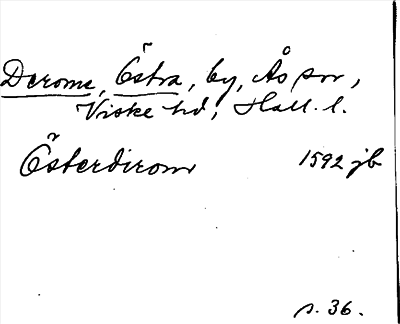 Derome, Östra, by, Ås sn,
Viske hd, Hall. l.
Österdirom 1592 jb
s. 36.